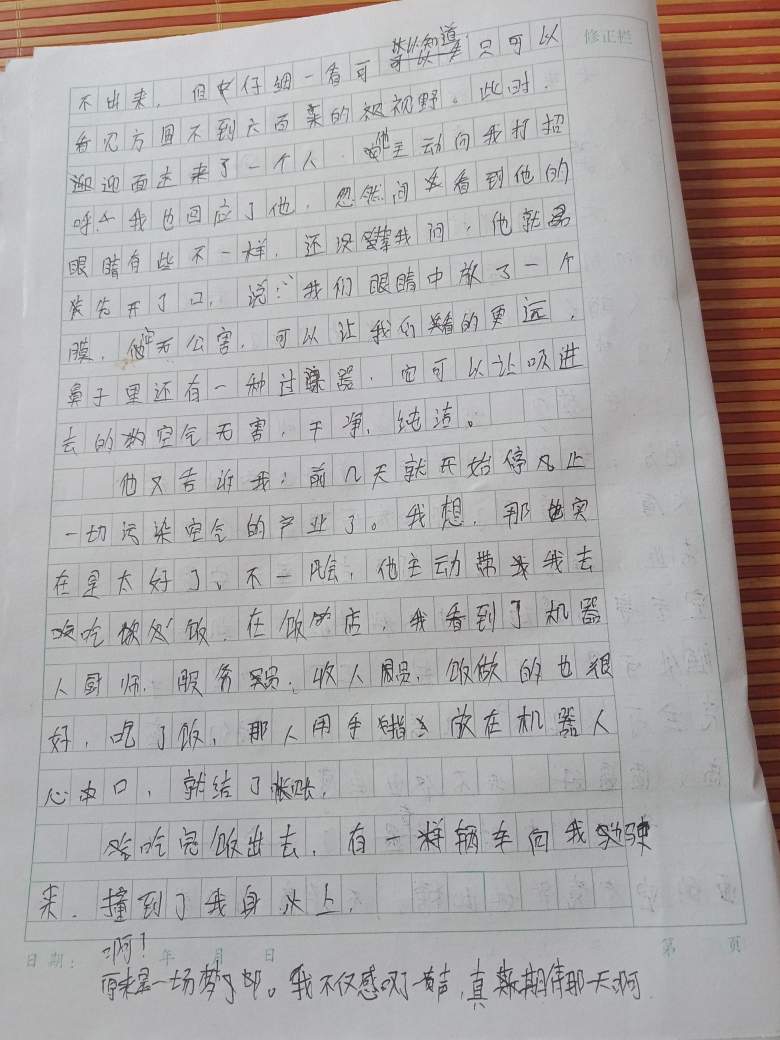 修正栏
不出来，但仔细一看可以知道只可以
看见方圆不到六百米的视野。此时，
迎面走来了一个人，他主动向我打招
呼，我也回应了他，忽然间看到他的
眼睛有些不一样，还没等我问，他就
先开了口，说："我们眼睛中放了一个
膜，它无公害，可以让我们看的更远，
鼻子里还有一种过滤器，它可以让吸进
去的空气无害，干净，纯洁。
他又告诉我：前几天就开始停止
一切污染空气的产业了。我想，那实
在是太好了、不一会，他主动带我去
吃饭，在饭店，我看到了机器
人厨师，服务员，收人员，饭做的也很
好，吃了饭，那人用手指放在机器人
心口，就结了账，
吃完饭出去，有一辆车向我驶
来，撞到了我身上，
日期： 年 月 日 第 页
啊！
原来是一场梦了却。我不仅感叹了一声，真期待那一天啊